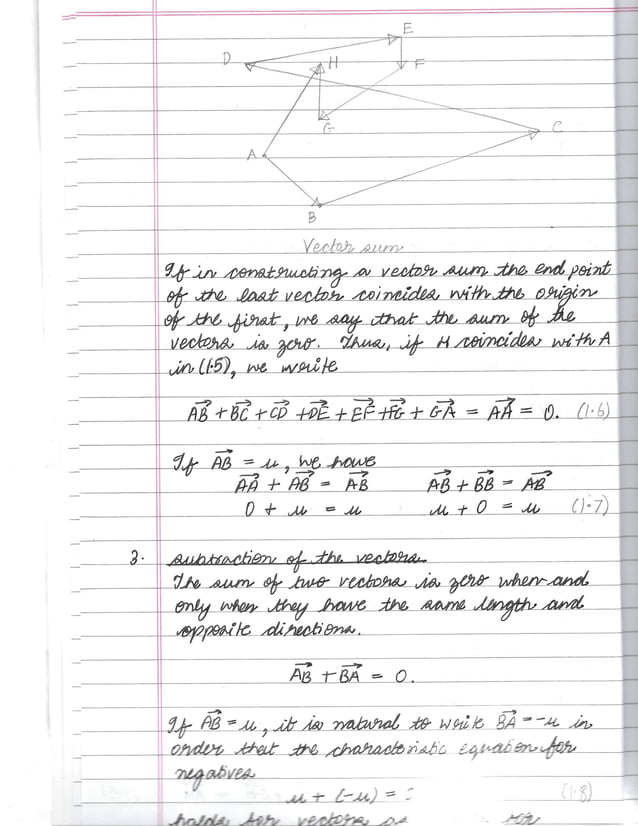 E
D
H
F
G
C
A
B
Vector sum
If in constructing a vector sum the end point
of the last vector coincides with the origin
of the first, we say that the sum of the
vectors is zero. Thus, if H coincides with A
in (1.5), we write
AB→ + BC→ + CD→ + DE→ + EF→ + FG→ + GA→ = AA→ = 0. (1.6)
If AB→ = u, we have
AA→ + AB→ = AB→ AB→ + BB→ = AB→
0 + u = u u + 0 = u (1.7)
3. subtraction of the vectors.
The sum of two vectors is zero when and
only when they have the same length and
opposite directions.
AB→ + BA→ = 0.
If AB→ = u, it is natural to write BA→ = -u in
order that the characteristic equation for
negatives
u + (-u) = (1.8)
holds for vectors as for